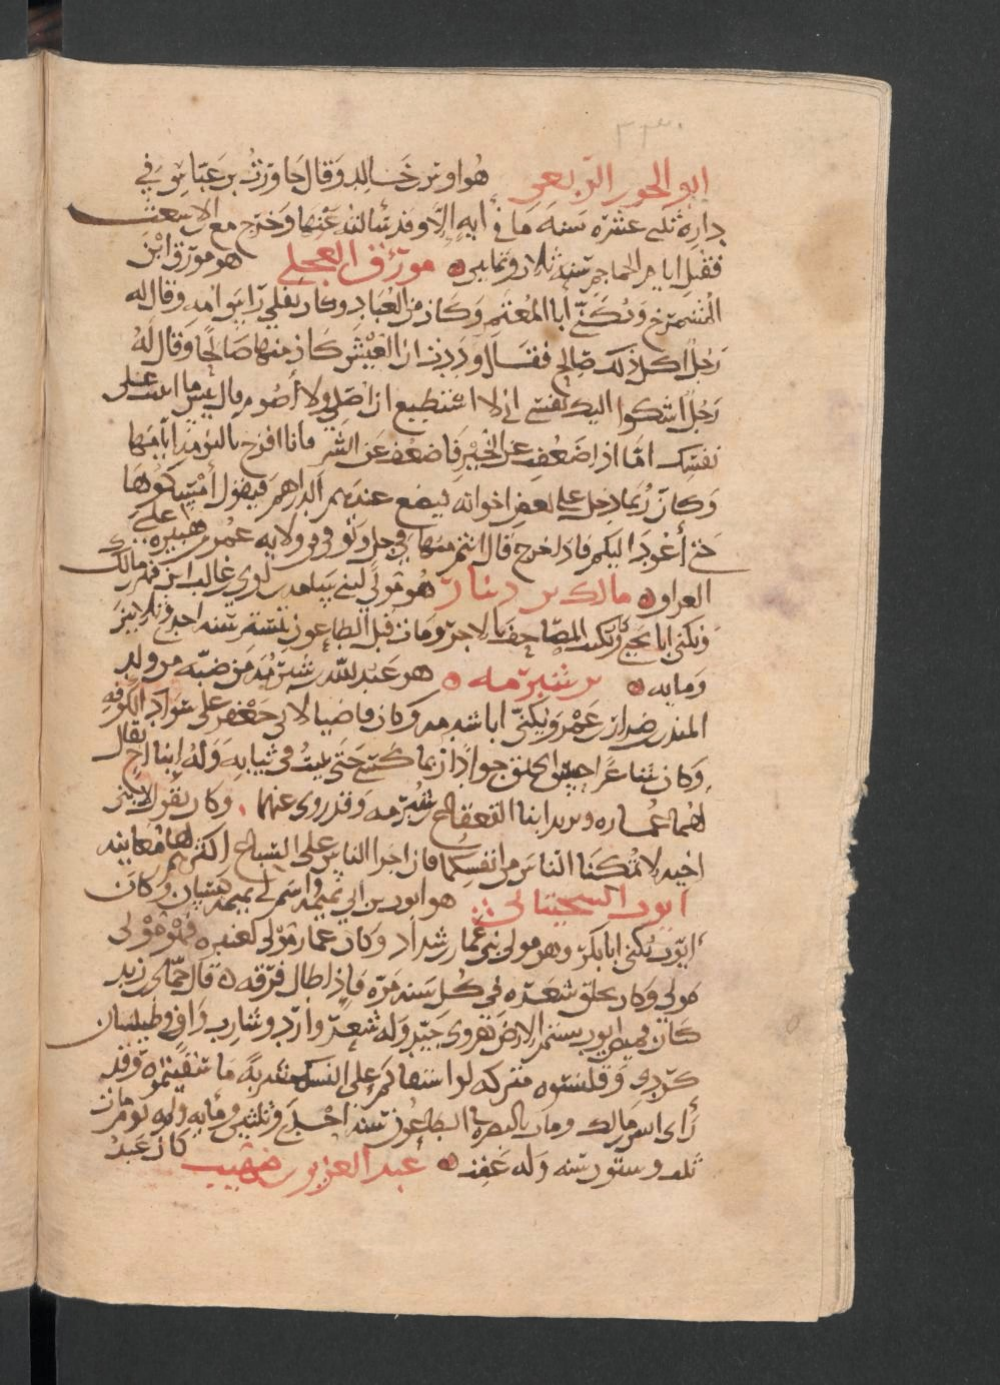 ابو الجوزا الربعي هو اوس بن خالد وقال جاورت بن عباس في
داره ثنتي عشرة سنة ما في اية الا وقد سالته عنها وخرج مع ابن الاشعث
فقتل ايام الجماجم سنة ثلاث وثمانين ه مورّق العجلي هو مورق ابن
المشمرخ ويكنى ابا المعتمر وكان من العباد وكان يفلي راس امه وقال له
رجل اكل ذلك صالح فقال وددت ان العشر كان منها صالحا وقال له
رجل اشكوا اليك نفسي اني لا استطيع ان اصلي ولا اصوم قال بيس ما اثنيت على
نفسك اما اذ اضعف عن الخير فاضعف عن الشر فانا افرح بالنومة انامها
وكان ربما دخل على بعض اخوانه فيضع عندهم الدراهم فيقول امسكوها
حتى أعود اليكم فاذا خرج قال انتم منها في حل وتوفي في ولاية عمر بن هبيرة على
العراق ه مالك بن دينار هو مولى لبني سامة بن لوي بن غالب ابن فهر بن مالك
ويكنى ابا يحيى وكان يكتب المصاحف بالاجر ومات قبل الطاعون بيسير سنة احدى وثلاثين
وماية ه بن شبرمة ه هو عبد الله بن شبرمة من ضبة من ولد
المنذر بن ضرار بن عمرو ويكنى ابا شبرمة وكان قاضيا لابي جعفر على سواد الكوفة
وكان شاعرا حسن الخلق جوادا ربما كسي حتى يبيت في ثيابه وله ابنا اخ يقال
لهما عمارة ويزيد ابنا القعقاع بن شبرمة وقد روي عنهما وكان يقول لابني
اخيه لا تمكنا الناس من انفسكما فان اجرا الناس على السباع اكثرهم لها معاينة
ايوب السختياني هو ايوب بن ابي تميمة واسم ابي تميمة كيسان وكان
ايوب يكنى ابابكر وهو مولى بني عمار بن شداد وكان عمار مولى لعنزه فهو مولى
مولى وكان يحلق شعره في كل سنة مرة فاذا طال فرقه ه قال حماد بن زيد
كان قميص ايوب يشم الارض هروي جيد وله شعر وارد وشارب وافي وطيلسان
كردي وقلنسوه متركه لو استسقاكم على النسك شربة ما سقيتموه وقد
رأى انس بن مالك ومات بالبصرة في الطاعون سنة احدى وثلثين وماية وله يوم مات
ثلث وستون سنة وله عقب ه عبد العزيز بن صهيب كان عبد